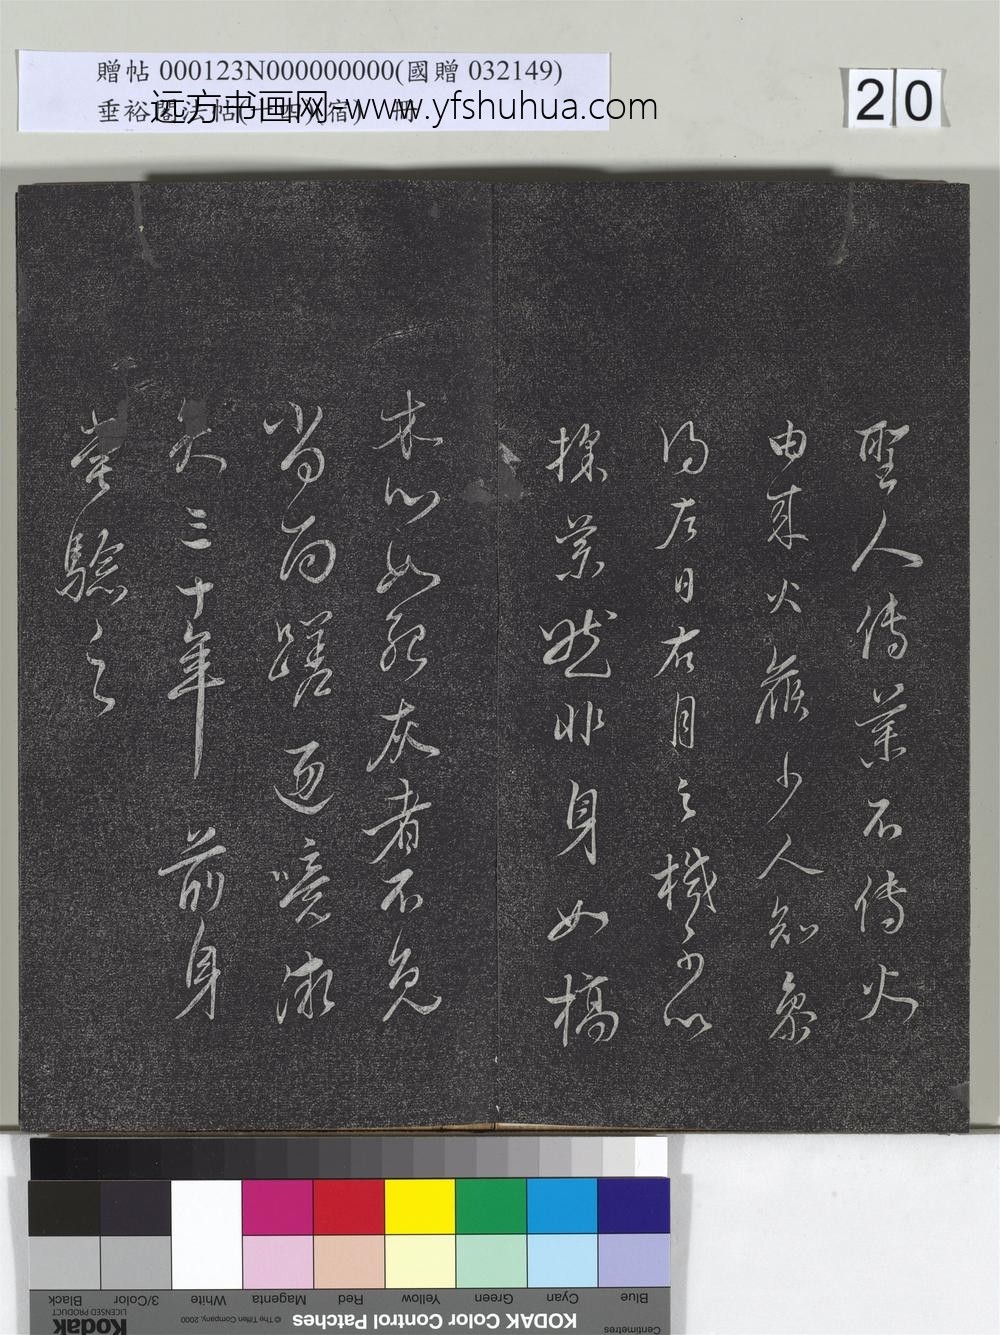 贈帖 000123N000000000(國贈 032149)
垂裕閣法帖 冊
远方书画网 www.yfshuhua.com
20
聖人傳藥不傳火
由來火候少人知象
得左日右月之機少心
採藥然非身如槁
木心如死灰者不免
當面蹉過噫微
矣三十年 前身
嘗驗之
Blue
Cyan
Green
Yellow
Red
Magenta
White
3/Color
Black
Centimetres
KODAK Color Control Patches
© The Tiffen Company, 2000
Kodak
LICENSED PRODUCT